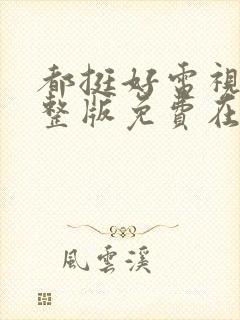 都挺好电視
整版免費在
風雲溪